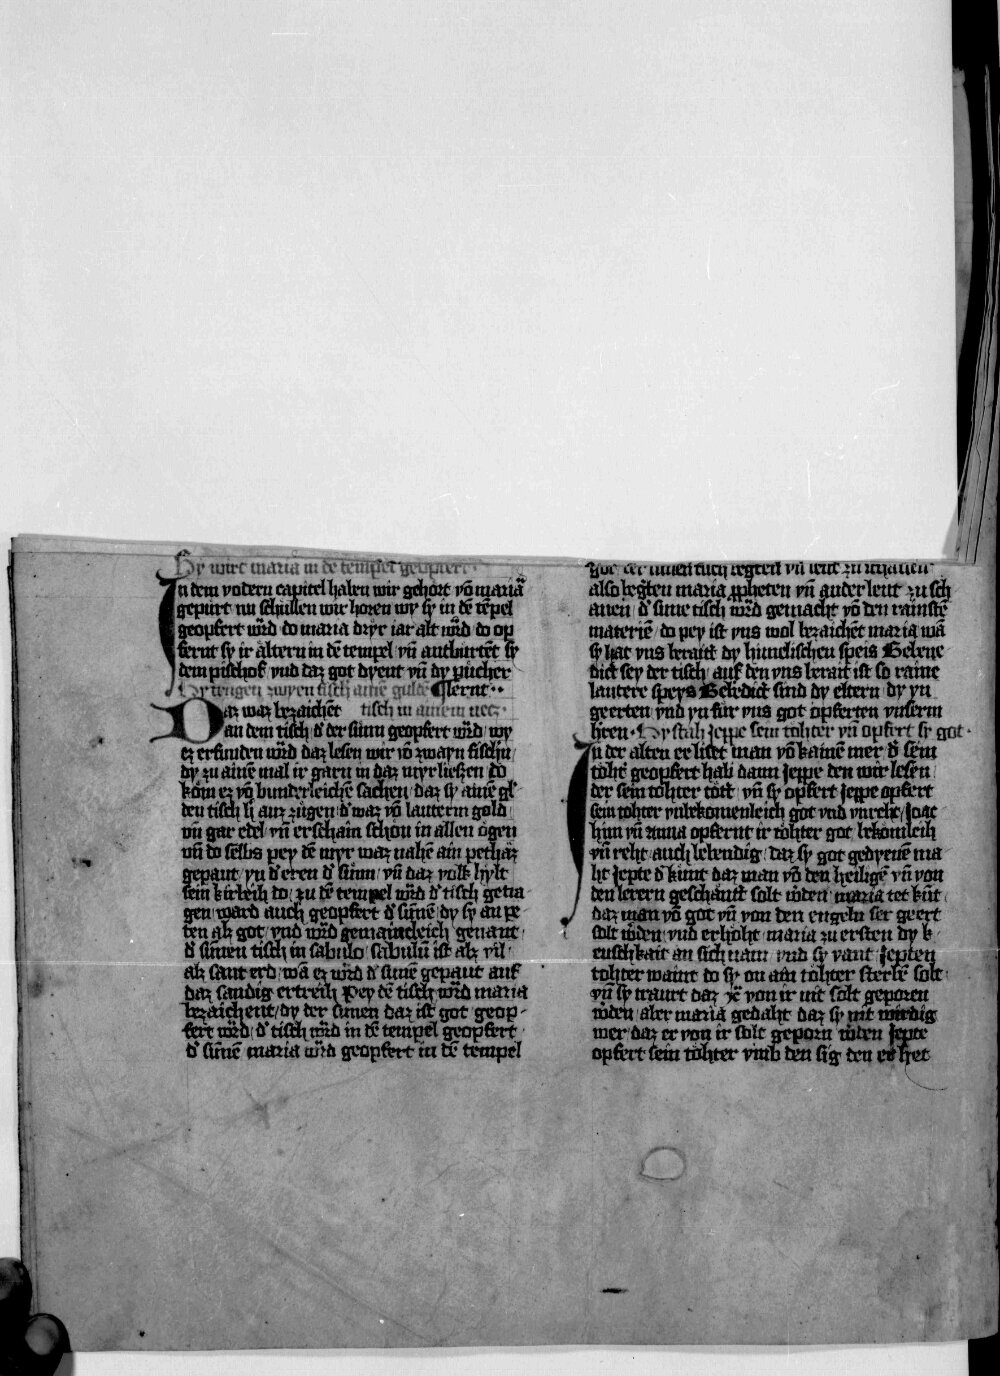 Hy wirt maria in dē tempel geopfert ·
In dem vodern capitel haben wir gehort vō maria
gepürt nu schüllen wir horen wy sy in dē tēpel
geopfert ward do maria dryr iar alt ward do op
fernt sy ir altern in dē tempel vn̄ antburtēt sy
dem pischof vnd daz got dyent vn̄ dy pücher
Hy zwyen fisch ainē guldē lernt ··
Daz waz bezaichēt tisch in ainem netz ·
an dem tisch d' der sunn geopfert ward wy
ez erfunden ward daz lesen wir vō zwayn fischn
dy zu ainē mal ir garn in daz myr liezzen do
kom ez vō bunderleichē sachen daz sy ainē gl'
den tisch auz zugen d' waz vō lauterm gold
vn̄ gar edel vn̄ erschain schon in allen ogen
vn̄ do selbs pey dē myr waz nahē ain pethaz
gepaut yn d' eren d' sunn vn̄ daz volk hylt
sein kirbeih do zu dē tempel ward d' tisch getra
gen ward auch geopfert d' sunnē dy sy an pe
ten alz got vnd ward gemaincleich genant
d' sunnen tisch in sabulo sabulū ist alz vil
alz sant erd wā ez ward d' sunnē gepaut auf
daz sandig ertreih Pey dē tisch ward maria
bezaichent dy der sunnen daz ist got geop
fert ward d' tisch ward in dē tempel geopfert
d' sunnē maria ward geopfert in dē tempel
vn̄
also begten maria ppheten vn̄ ander leut zu sch
auen d' sunne tisch ward gemacht vō den rainstē
materiē do pey ist vns wol bezaichēt maria wā
sy hat vns berait dy himelischen speis Gebene
dict sey der tisch auf den vns berait ist so raine
lautere speys Gebedict sind dy eltern dy yn
geerten vnd yn für vns got opferten vnserm
hren · Hy stah Jeppe sein tohter vn̄ opfert sy got ·
In der alten ee liset man vō kainē mer d' sein
tohtē geopfert hab dann Jeppe den wir lesen
der sein tohter tott vn̄ sy opfert Jeppe opfert
sein tohter vnbekomenleich got vnd vnreht Joac
him vn̄ anna opfernt ir tohter got bekomleih
vn̄ reht auch lebendig daz sy got gedyenē ma
ht Jepte d' kint daz man vō den heiligē vn̄ von
den lerern geschantt solt wden maria tet kūt
daz man vō got vn̄ von den engeln ser geert
solt wden vnd erhoht maria zu ersten dy k
euschkait an sich nam vnd sy vant Jepten
tohter waint do sy on ain tohter sterbē solt
vn̄ sy traurt daz von ir nit solt geporen
wden aber maria gedaht daz sy nit wirdig
wer daz er von ir solt geporn wden Jepte
opfert sein tohter vmb den sig den er het